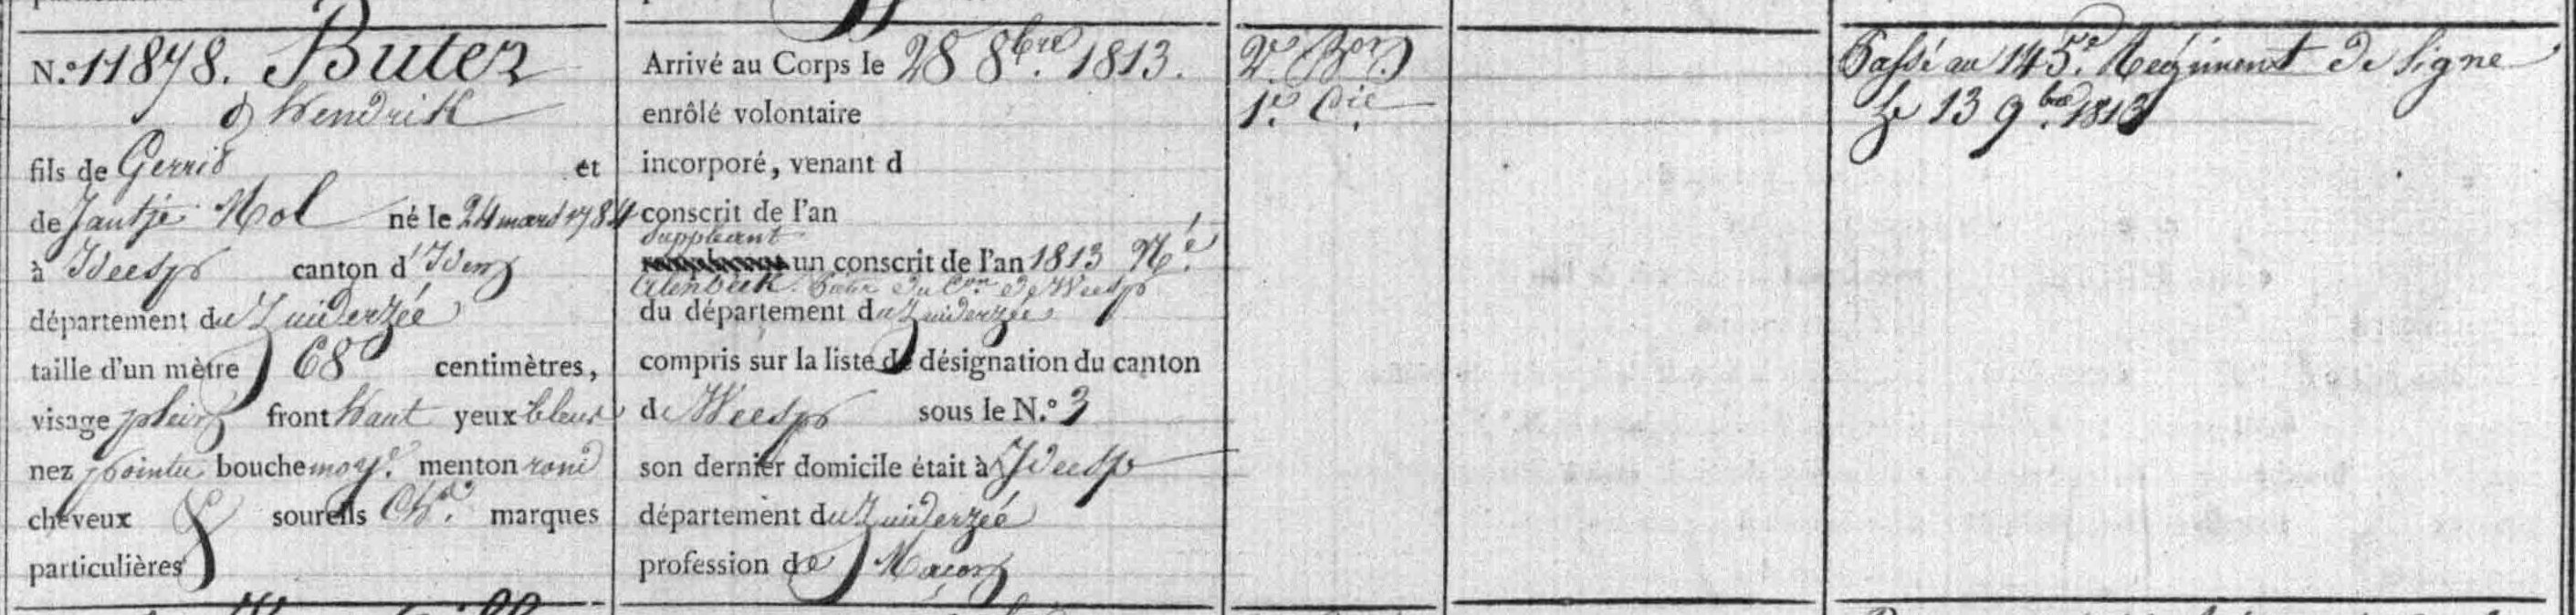 N.° 11878. Buter
Hendrik
fils de Gerrit et
de Jantje Mol né le 24 mars 1784
à Weesp canton d'Idem
département du Zuiderzée
taille d'un mètre 68 centimètres,
visage plein front haut yeux bleus
nez pointu bouche moy.e menton rond
cheveux & sourcils Ch.s marques
particulières
Arrivé au Corps le 28 8bre. 1813.
enrôlé volontaire
incorporé, venant d
conscrit de l'an
suppléant
un conscrit de l'an 1813 N.é
du C.on de Weesp
du département du Zuiderzée
compris sur la liste de désignation du canton
de Weesp sous le N.° 3
son dernier domicile était à Weesp
département du Zuiderzée
profession de Maçon
2.e B.on
1.e C.ie
Passé au 145.e Régiment de ligne
Le 13 9bre. 1813